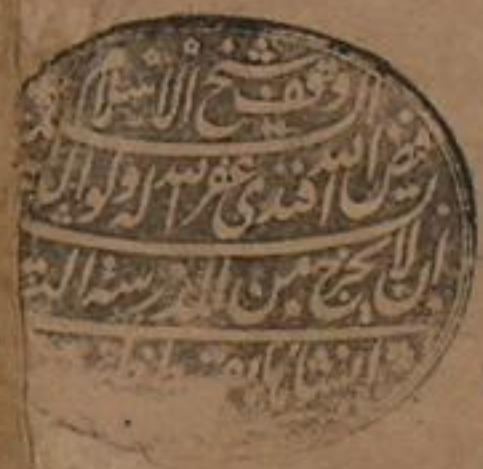 وقف شيخ الاسلام
فيض الله افندى غفر الله له ولوالد
ان لا يخرج من المدرسة ال
انشاها بقسطنطـ